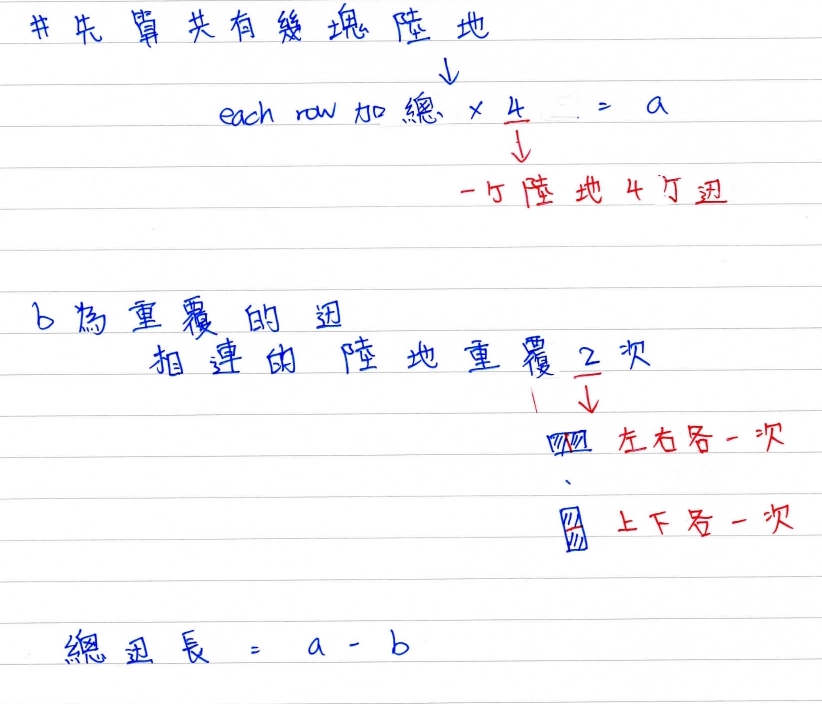 #先算共有幾塊陸地
↓
each row 加總 × 4 = a
↓
一个陸地4个边
b為重覆的边
相連的陸地重覆2次
↓
左右各一次
、
上下各一次
總边長 = a - b